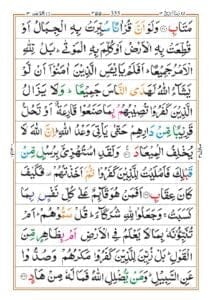 مَتَابِ ۝ وَلَوْ اَنَّ قُرْاٰنًا سُيِّرَتْ بِهِ الْجِبَالُ اَوْ
قُطِّعَتْ بِهِ الْاَرْضُ اَوْ كُلِّمَ بِهِ الْمَوْتٰى ؕ بَلْ لِّلّٰهِ
الْاَمْرُ جَمِيْعًا ؕ اَفَلَمْ يَايْـَٔسِ الَّذِيْنَ اٰمَنُوْۤا اَنْ لَّوْ يَشَآءُ
اللّٰهُ لَهَدَى النَّاسَ جَمِيْعًا ؕ وَلَا يَزَالُ
الَّذِيْنَ كَفَرُوْا تُصِيْبُهُمْ بِمَا صَنَعُوْا قَارِعَةٌ اَوْ تَحُلُّ
قَرِيْبًا مِّنْ دَارِهِمْ حَتّٰى يَاْتِيَ وَعْدُ اللّٰهِ ؕ اِنَّ اللّٰهَ لَا
يُخْلِفُ الْمِيْعَادَ ۝ وَلَقَدِ اسْتُهْزِئَ بِرُسُلٍ مِّنْ قَبْلِكَ
فَاَمْلَيْتُ لِلَّذِيْنَ كَفَرُوْا ثُمَّ اَخَذْتُهُمْ ۫ فَكَيْفَ
كَانَ عِقَابِ ۝ اَفَمَنْ هُوَ قَآئِمٌ عَلٰى كُلِّ نَفْسٍۭ بِمَا
كَسَبَتْ ۚ وَجَعَلُوْا لِلّٰهِ شُرَكَآءَ ؕ قُلْ سَمُّوْهُمْ ؕ اَمْ
تُنَبِّـُٔوْنَهٗ بِمَا لَا يَعْلَمُ فِى الْاَرْضِ اَمْ بِظَاهِرٍ مِّنَ
الْقَوْلِ ؕ بَلْ زُيِّنَ لِلَّذِيْنَ كَفَرُوْا مَكْرُهُمْ وَصُدُّوْا
عَنِ السَّبِيْلِ ؕ وَمَنْ يُّضْلِلِ اللّٰهُ فَمَا لَهٗ مِنْ هَادٍ ۝